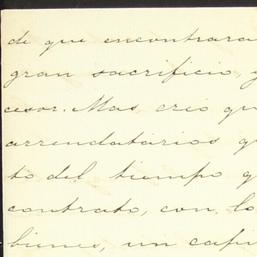 de que encontrara
gran sacrificio, y
cesor. Mas, creo qu
arrendatarios q
to del tiempo q
contrato, con lo
bienes, un capi